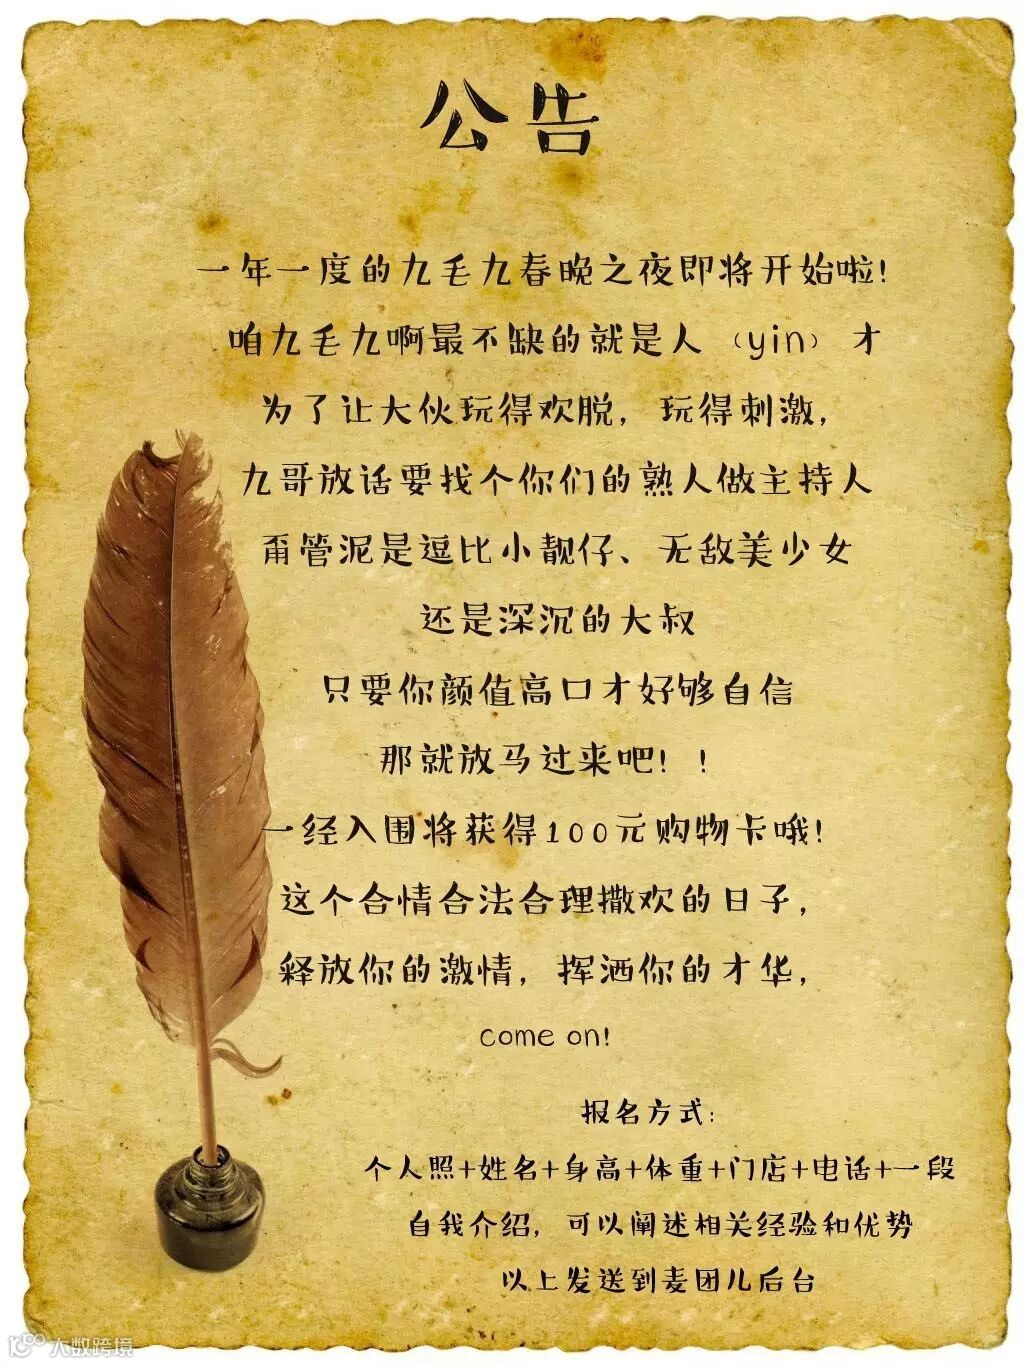 公告
一年一度的九毛九春晚之夜即将开始啦!
咱九毛九啊最不缺的就是人（yin）才
为了让大伙玩得欢脱，玩得刺激，
九哥放话要找个你们的熟人做主持人
甭管泥是逗比小靓仔、无敌美少女
还是深沉的大叔
只要你颜值高口才好够自信
那就放马过来吧!!
一经入围将获得100元购物卡哦!
这个合情合法合理撒欢的日子，
释放你的激情，挥洒你的才华，
come on!
报名方式:
个人照+姓名+身高+体重+门店+电话+一段
自我介绍，可以阐述相关经验和优势
以上发送到麦团儿后台
大数跨境